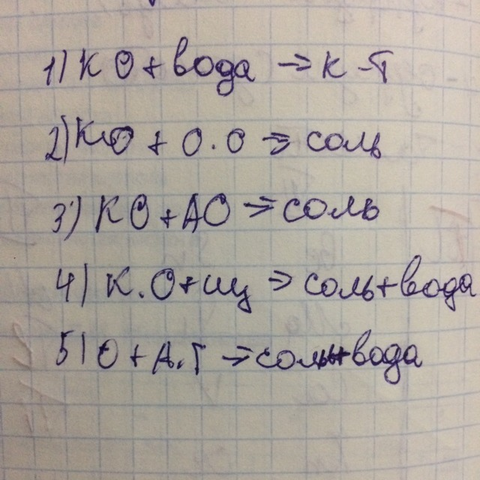 1) КО + вода → к-т
2) КО + О.О ⇒ соль
3) КО + АО ⇒ соль
4) К.О + щ ⇒ соль + вода
5) О + А.Г → соль + вода